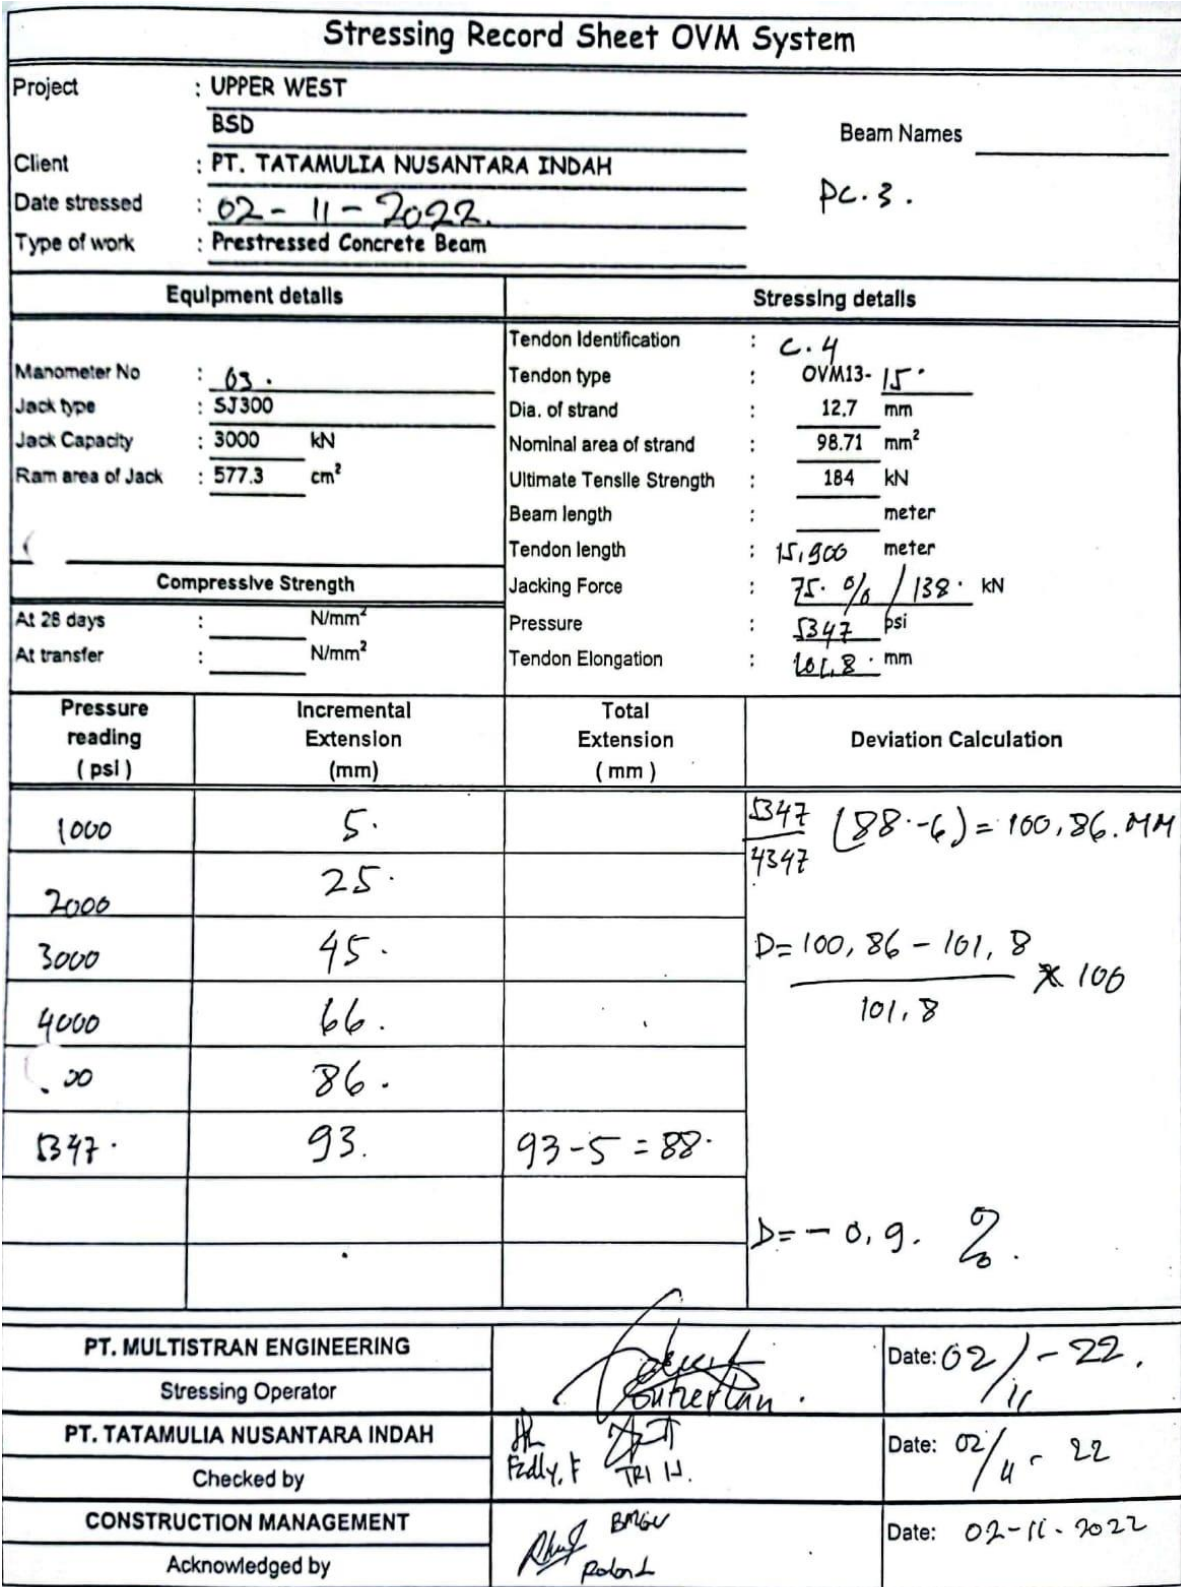 Stressing Record Sheet OVM System
Project : UPPER WEST
BSD
Beam Names
Client : PT. TATAMULIA NUSANTARA INDAH
PC.3.
Date stressed : 02-11-2022.
Type of work : Prestressed Concrete Beam
Equipment details
Manometer No : 03.
Jack type : SJ300
Jack Capacity : 3000 kN
Ram area of Jack : 577.3 cm²
Compressive Strength
At 28 days : N/mm²
At transfer : N/mm²
Stressing details
Tendon Identification : C.4
Tendon type : OVM13- 15.
Dia. of strand : 12.7 mm
Nominal area of strand : 98.71 mm²
Ultimate Tensile Strength : 184 kN
Beam length : meter
Tendon length : 15,900 meter
Jacking Force : 75. % / 138. kN
Pressure : 5347 psi
Tendon Elongation : 101,8. mm
Pressure reading (psi) Incremental Extension (mm) Total Extension (mm) Deviation Calculation
1000 5.
2000 25.
3000 45.
4000 66.
00 86.
5347. 93. 93-5 = 88.
5347/4347 (88.-6) = 100,86.MM
D= 100,86 - 101,8 / 101,8 x 100
D= - 0,9. %.
PT. MULTISTRAN ENGINEERING
Stressing Operator
Date: 02/11-22.
PT. TATAMULIA NUSANTARA INDAH
Checked by
Fadly.F TRI H.
Date: 02/11-22
CONSTRUCTION MANAGEMENT
Acknowledged by
Date: 02-11-2022